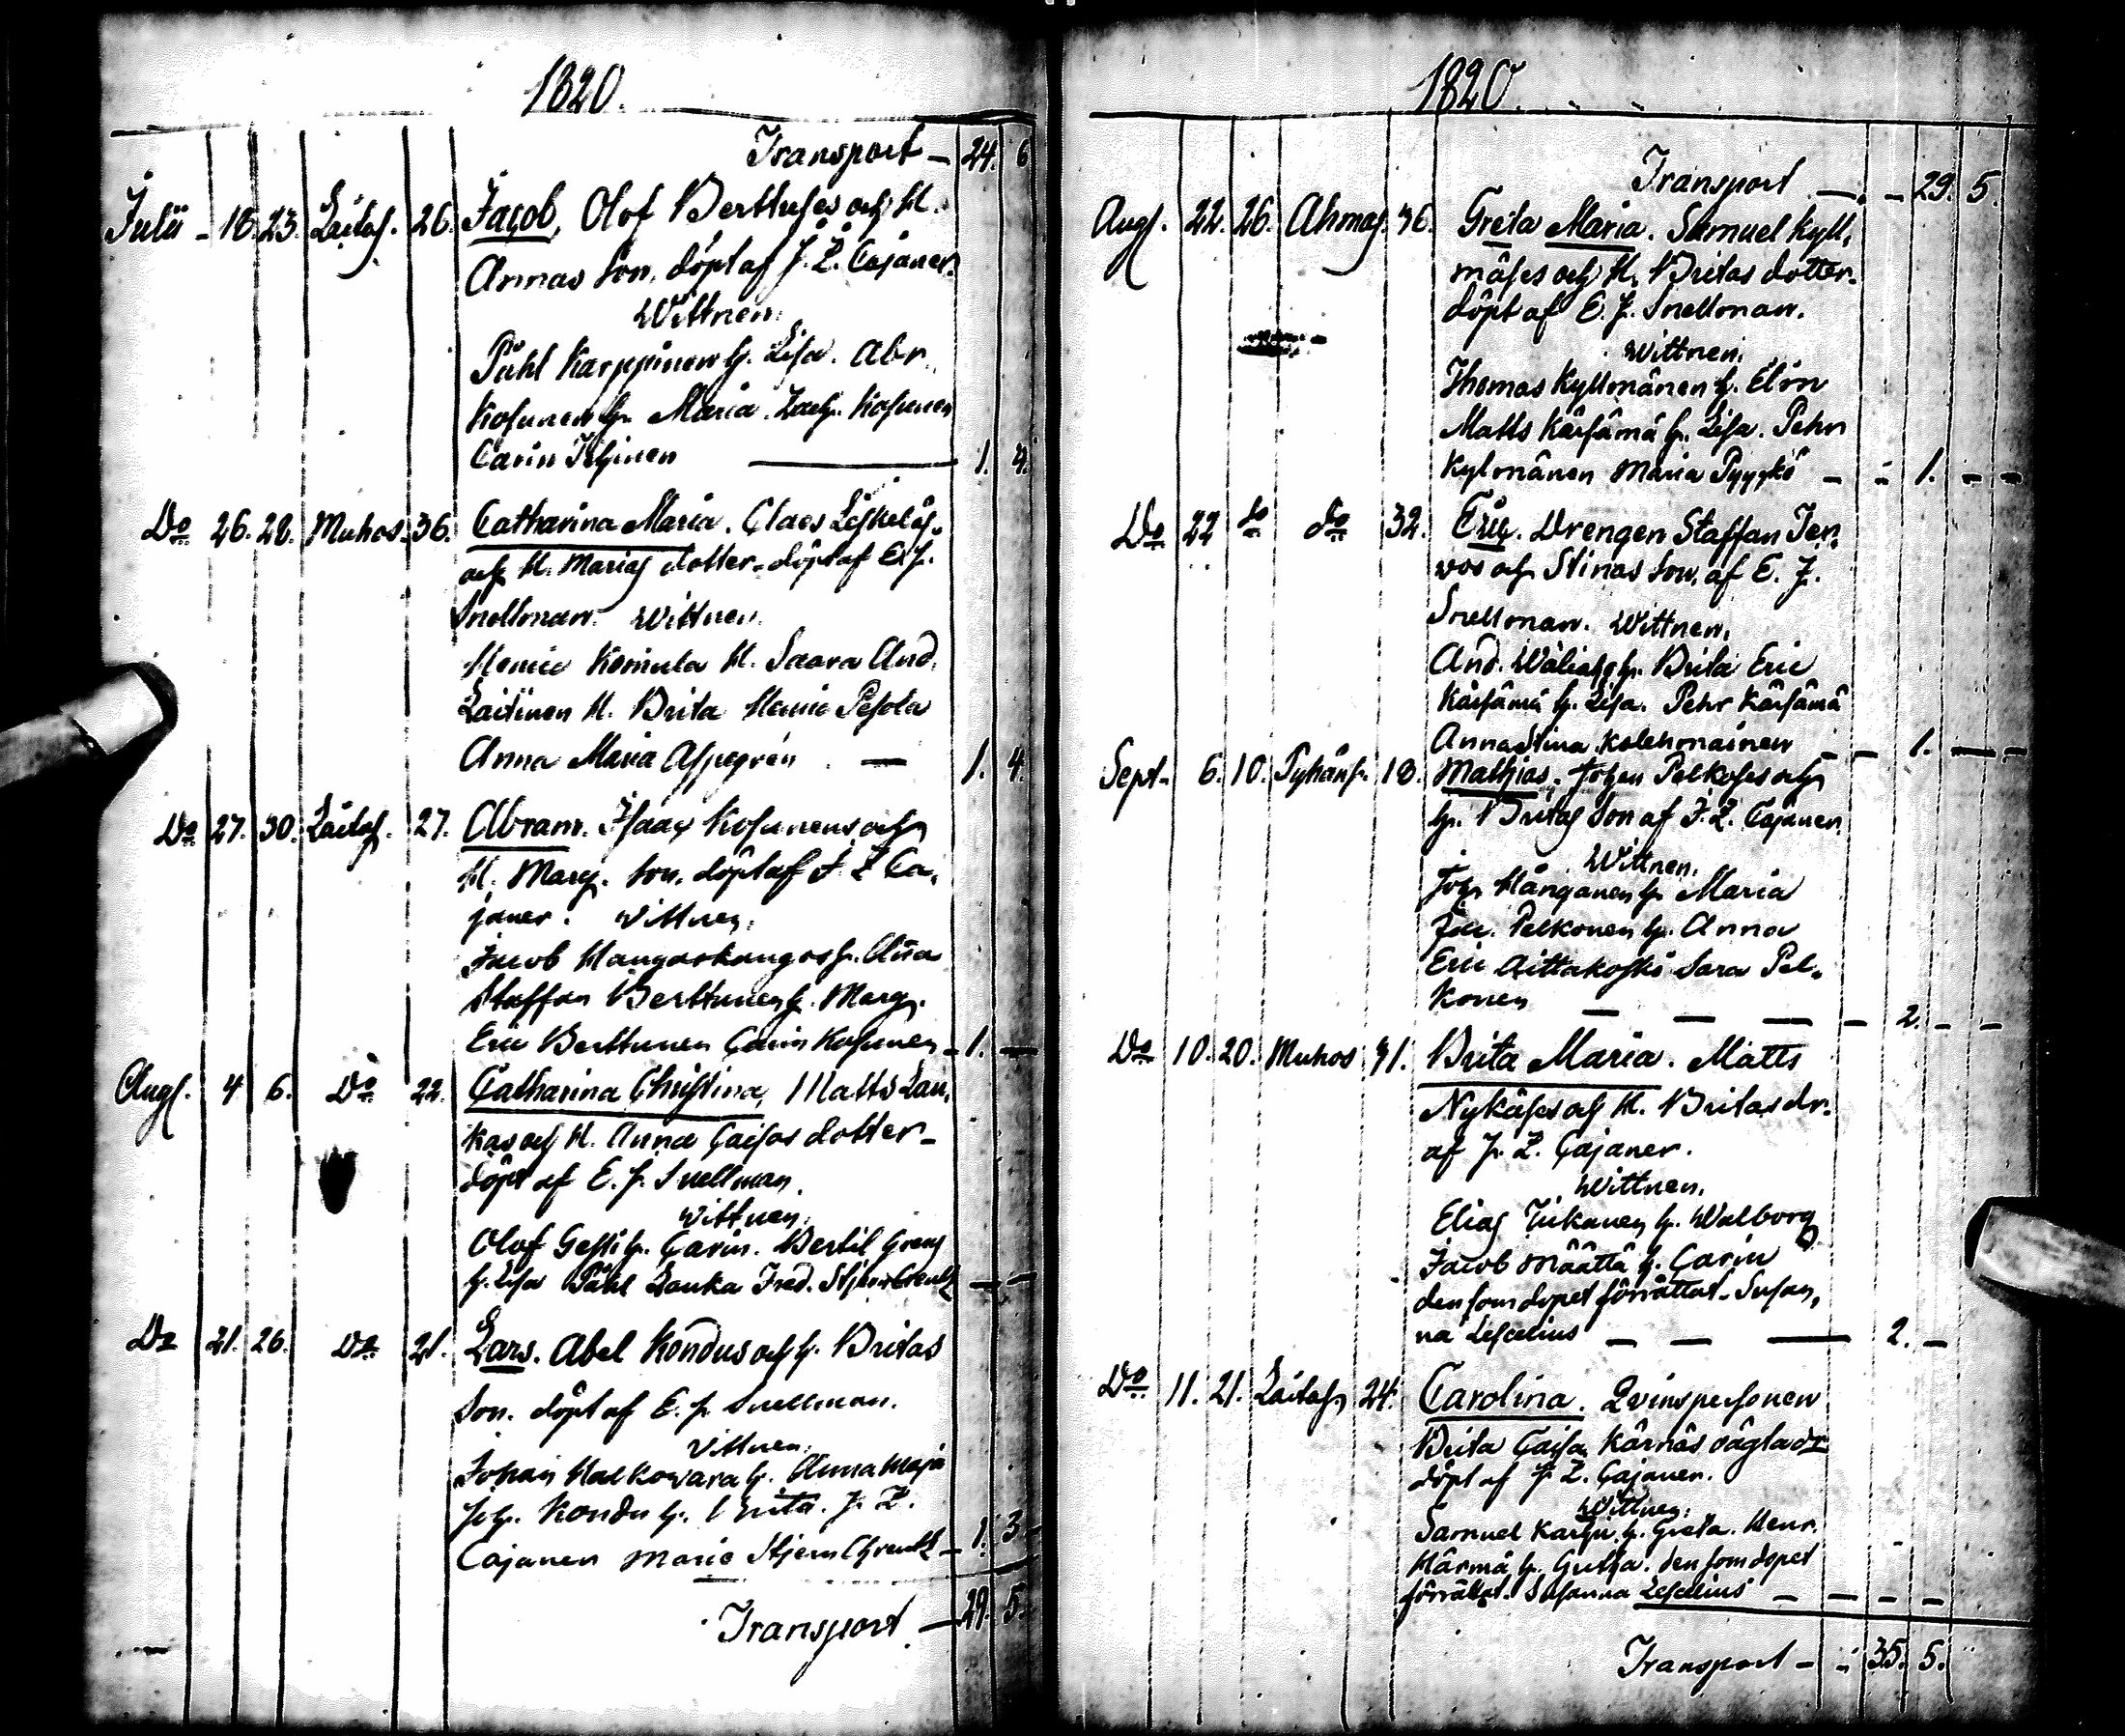 1820.
Transport — 24. 6
Julii - 18. 23. Laitas. 26. Jacob, Olof Berttuses och H.
Annas Son, döpt af J. Z. Cajaner.
Wittnen.
Påhl Karppinen h. Lisa. Abr.
Kosunen h. Maria. Zach. Kosunen
Carin Ichinen — 1. 4.
Do 26. 28. Muhos 36. Catharina Maria. Claes Leskeläs
och H. Marias dotter - döpt af E. J.
Snellman. Wittnen.
Henric Komula H. Saara And.
Laitinen H. Brita Henric Pesola
Anna Maria Aspegrén — 1. 4.
Do 27. 30. Laitas. 27. Abram. Isaac Kosunens och
H. Marg. Son. döpt af J. Z. Ca,
janer. Wittnen.
Jacob Hangaskangas h. Anna
Staffan Berttunen h. Marg.
Eric Berttunen Carin Kosunen - 1. —
Augs. 4 6. Do 22. Catharina Christina, Matts Lau,
kas och H. Anna Caisas dotter -
döpt af E. J. Snellman.
Wittnen.
Olof h. Carin. Bertil Grens
h. Lisa Påhl Lauka Fred. StjernCreutz — —
Do 21. 26. Do 21. Lars. Abel Kondus och h. Britas
Son. döpt af E. J. Snellman.
Vittnen.
Johan Halkowara h. Anna Maja
Joh. Kondu h. Brita. J. Z.
Cajanen Maria StjernCreutz — 1. 3 -
Transport — 29. 5.
1820.
Transport — - 29. 5.
Augs. 22. 26. Ahmas. 36. Greta Maria. Samuel Kyll,
mäses och H. Britas dotter.
döpt af E. J. Snellman.
Wittnen.
Thomas Kyllmänen h. Elin
Matts Kärsämä h. Lisa. Pehr
Kylmänen Maria Pyykö — - 1. — —
Do 22 do do 32. Eric. Drengen Staffan Jer,
vos och Stinas Son, af E. J.
Snellman. Wittnen.
And. h. Brita Eric
Kärsämä h. Lisa. Pehr Kärsämä
Anna Stina Kolehmainen — — 1. — —
Sept. 6. 10. Pyhäns. 18. Mathias. Johan Pelkoses och
h. Britas Son af J. Z. Cajaner.
Wittnen.
Joh. Hänganen h. Maria
Jac. Pelkonen h. Anna
Eric Aittakoski Sara Pel-
konen — — — — 2. — —
Do 10. 20. Muhos 31. Brita Maria. Matts
Nykäses och H. Britas dr.
af J. Z. Cajaner.
Wittnen.
Elias Tiikanen h. Walborg
Jacob Määttä h. Carin
den som dopet förrättat - Susan,
na Lescelius — — — 2. —
Do 11. 21. Laitas. 24. Carolina. Qvinspersonen
Brita Caisa Kärnäs oägta dr
döpt af J. Z. Cajaner.
Wittnen.
Samuel Karhu h. Greta. Henr.
Härmä h. Gretha. den som dopet
förrättat. Susanna Lescelius — — — —
Transport — - 35. 5.